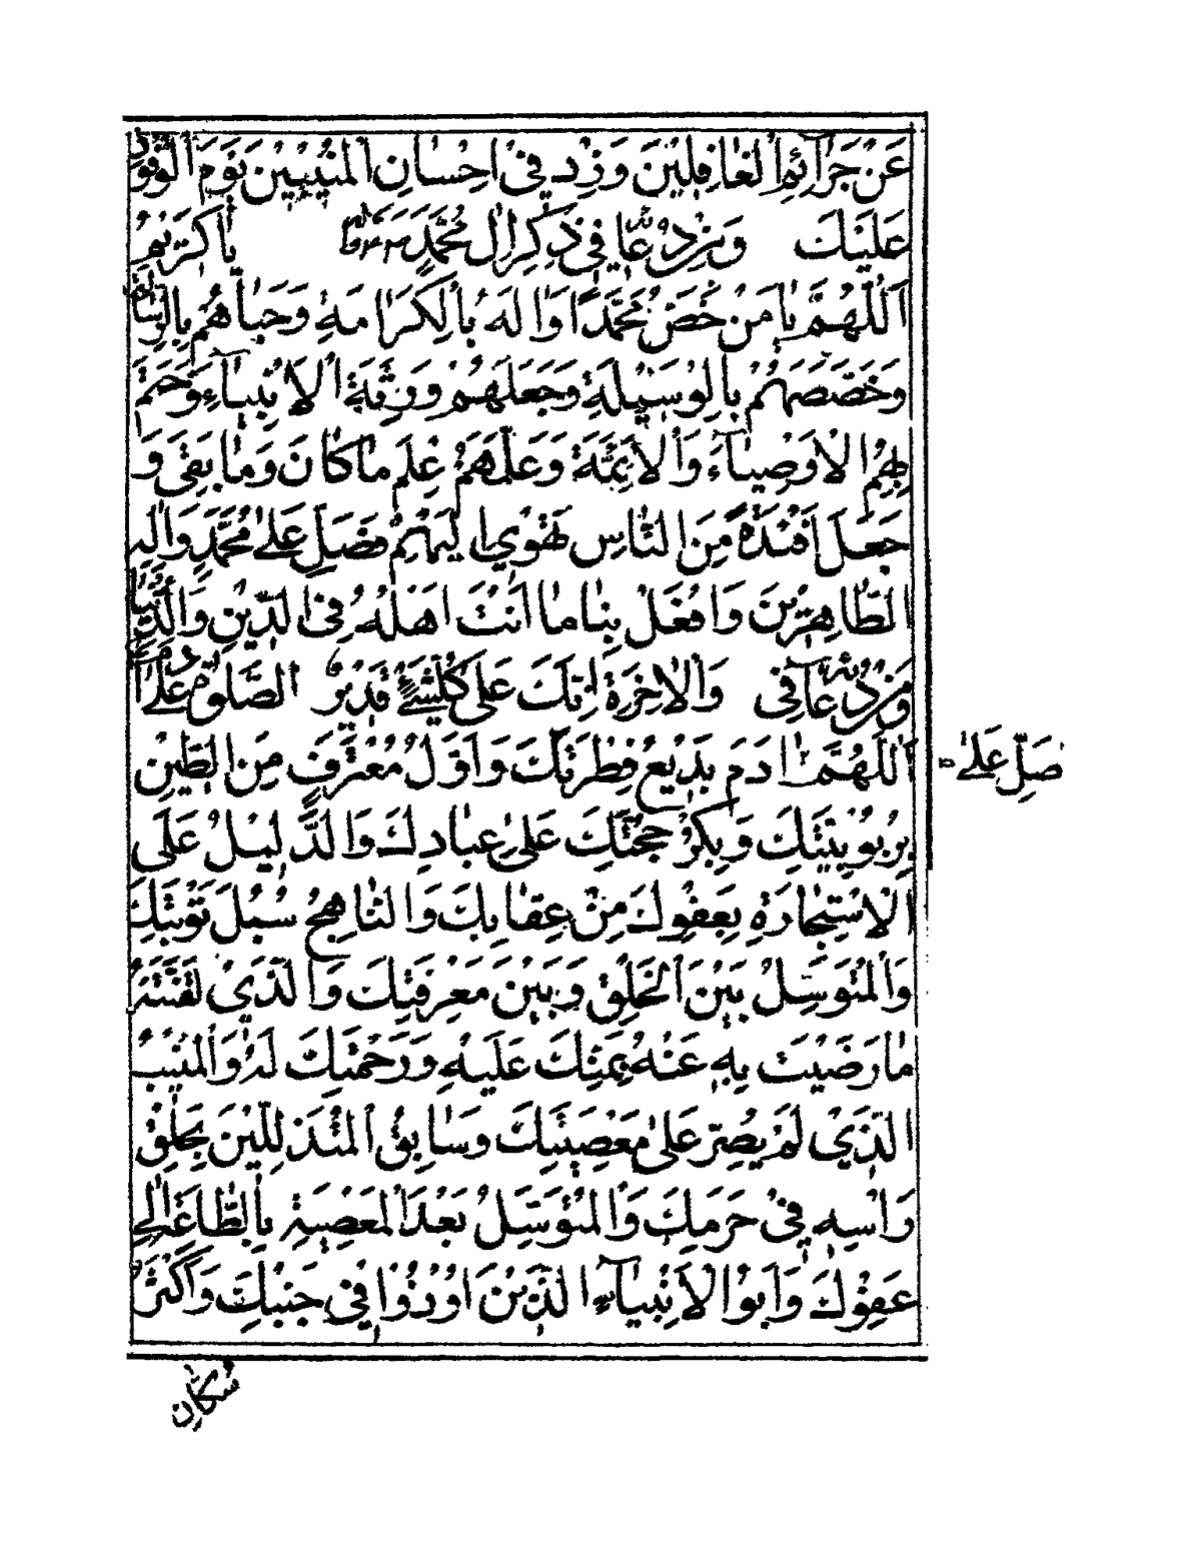 عَنْ جَرَآئِمِ الْغٰافِلِيْنَ وَزِدْ فِيْ اِحْسٰانِ الْمُنِيْبِيْنَ يَوْمَ الْوُفُوْدِ
عَلَيْكَ وَمِنْ دُعَآئِهٖ فِيْ ذِكْرِ اٰلِ مُحَمَّدٍ
اَللّٰهُمَّ يٰا مَنْ خَصَّ مُحَمَّدًا وَاٰلَهُ بِالْكَرَامَةِ وَحَبٰاهُمْ بِالرِّسٰالَةِ
وَخَصَّصَهُمْ بِالْوَسِيْلَةِ وَجَعَلَهُمْ وَرَثَةَ الْاَنْبِيٰآءِ وَخَتَمَ
بِهِمُ الْاَوْصِيٰآءَ وَالْاَئِمَّةَ وَعَلَّمَهُمْ عِلْمَ مٰا كٰانَ وَمٰا بَقِيَ وَ
جَعَلَ اَفْئِدَةً مِنَ النّٰاسِ تَهْوِيْ اِلَيْهِمْ فَصَلِّ عَلٰى مُحَمَّدٍ وَاٰلِهِ
الطّٰاهِرِيْنَ وَافْعَلْ بِنٰا مٰا اَنْتَ اَهْلُهُ فِى الدِّيْنِ وَالدُّنْيٰا
وَالْاٰخِرَةِ اِنَّكَ عَلٰى كُلِّ شَيْءٍ قَدِيْرٌ وَمِنْ دُعَآئِهٖ فِى الصَّلٰوةِ عَلٰى اٰدَمَ
اَللّٰهُمَّ اٰدَمُ بَدِيْعُ فِطْرَتِكَ وَاَوَّلُ مُعْتَرِفٍ مِنَ الطِّيْنِ
صَلِّ عَلٰى
بِرُبُوْبِيَّتِكَ وَبِكْرُ حُجَّتِكَ عَلٰى عِبٰادِكَ وَالدَّلِيْلُ عَلَى
الْاِسْتِجٰارَةِ بِعَفْوِكَ مِنْ عِقٰابِكَ وَالنّٰاهِجُ سُبُلَ تَوْبَتِكَ
وَالْمُتَوَسِّلُ بَيْنَ الْخَلْقِ وَبَيْنَ مَعْرِفَتِكَ وَالَّذِيْ لَقَّنْتَهُ
مٰا رَضِيْتَ بِهٖ عَنْهُ بِمَنِّكَ عَلَيْهِ وَرَحْمَتِكَ لَهُ وَالْمُنِيْبُ
الَّذِيْ لَمْ يُصِرَّ عَلٰى مَعْصِيَتِكَ وَسٰابِقُ الْمُتَذَلِّلِيْنَ بِحَلْقِ
رَاْسِهٖ فِيْ حَرَمِكَ وَالْمُتَوَسِّلُ بَعْدَ الْمَعْصِيَةِ بِالطّٰاعَةِ اِلٰى
عَفْوِكَ وَاَبُو الْاَنْبِيٰآءِ الَّذِيْنَ اُوْذُوْا فِيْ جَنْبِكَ وَاَكْثَرُ
سُكّٰانِ